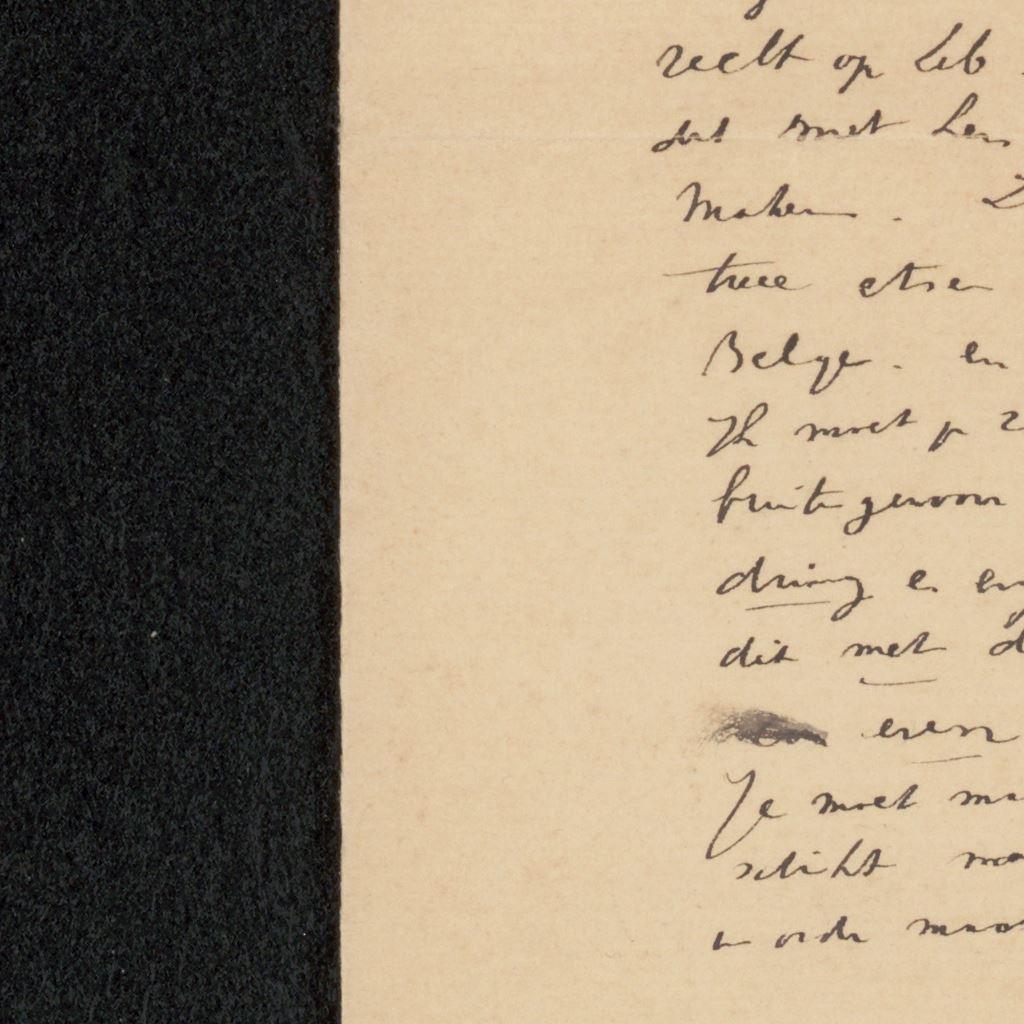 recht op heb
dat met hem
maken. D
twee etsen
Belge. en
Ik moet je
buitengewoon
dring en
dit met d
even
Je moet
schikt
in orde maar